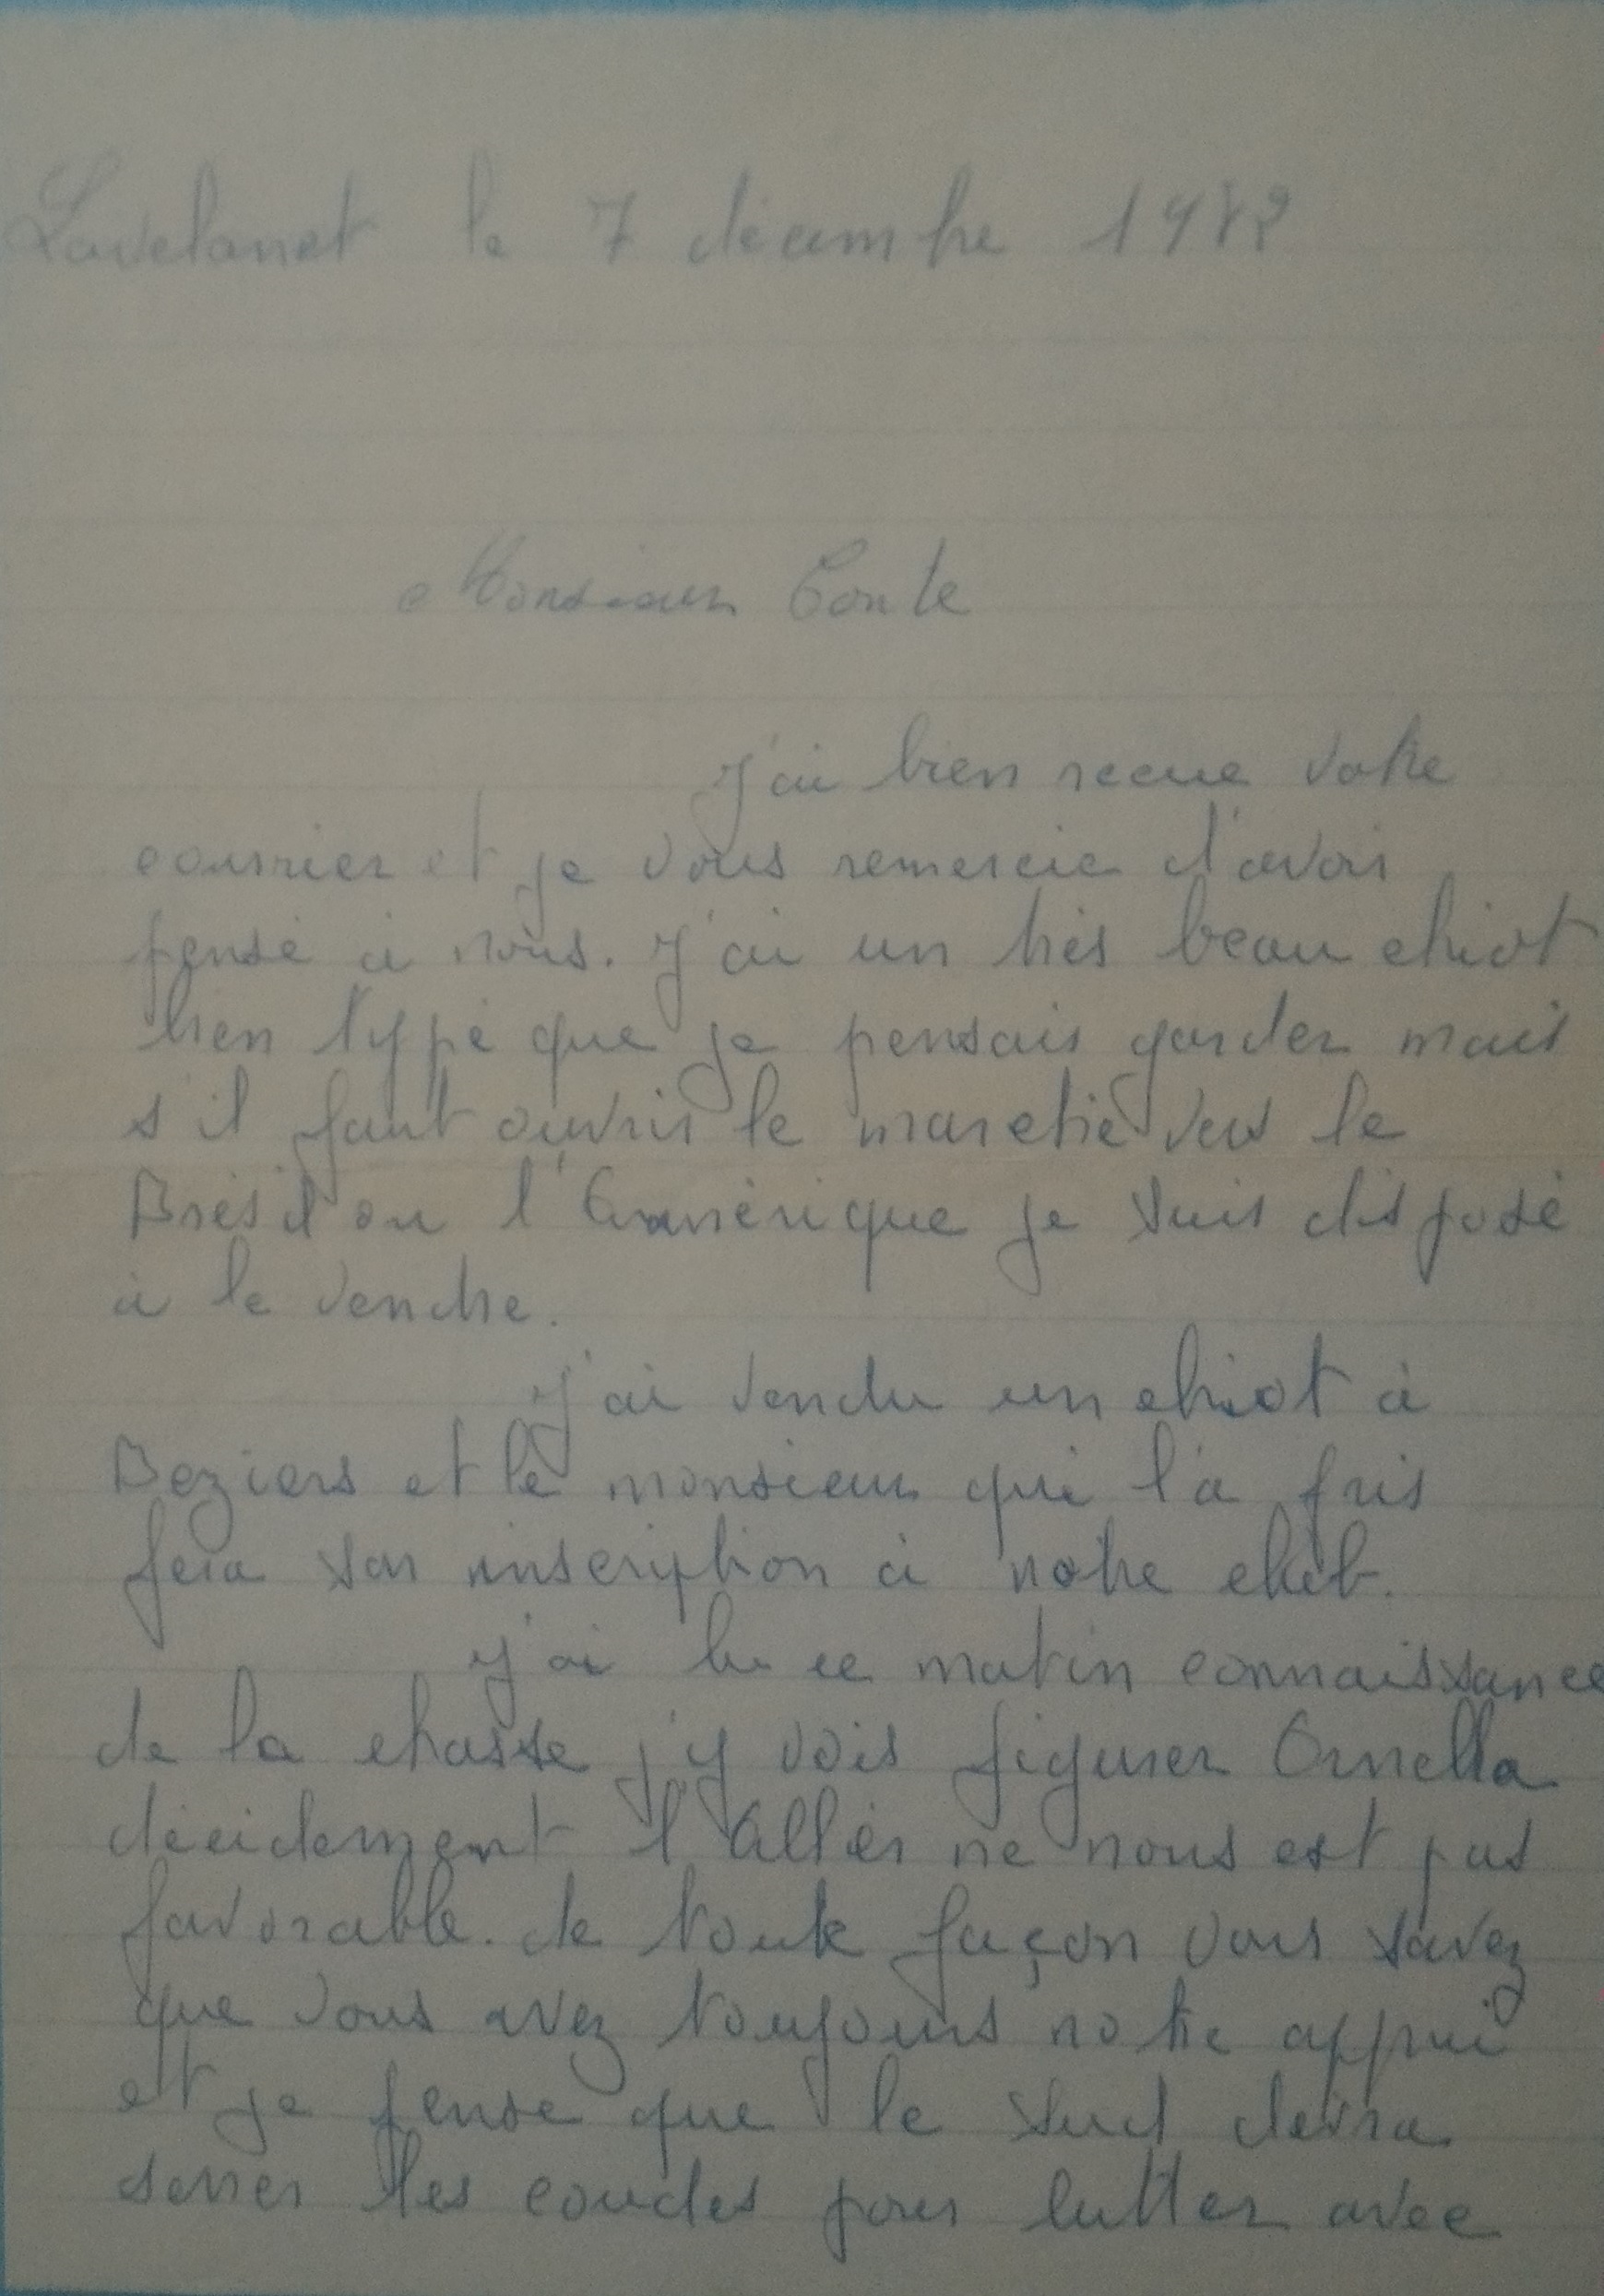 Lavelanet le 7 décembre 19
Monsieur Conte
J'ai bien recue votre
courrier et je vous remercie d'avoir
pensé à nous. J'ai un très beau chiot
bien typé que je pensais garder mais
s'il faut ouvrir le marché vers le
Brésil ou l'Amérique je suis disposé
à le vendre.
J'ai vendu un chiot à
Beziers et le monsieur qui l'a pris
fera son inscription à notre club.
J'ai lu ce matin connaissance
de la chasse j'y vois figurer Ornella
décidement l'Allier ne nous est pas
favorable. de toute façon vous savez
que vous avez toujours notre appui
et je pense que le Sud devra
serrer les coudes pour lutter avec